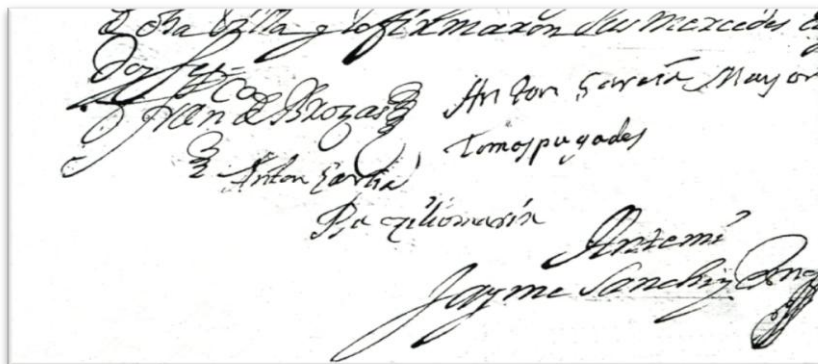 dha villa y lo firmaron sus mercedes
doy fee
Juan de Brozas
Anton Garcia Mayor
tomas pugades
Anton Garcia
Antemi
Jayme Sanchiz